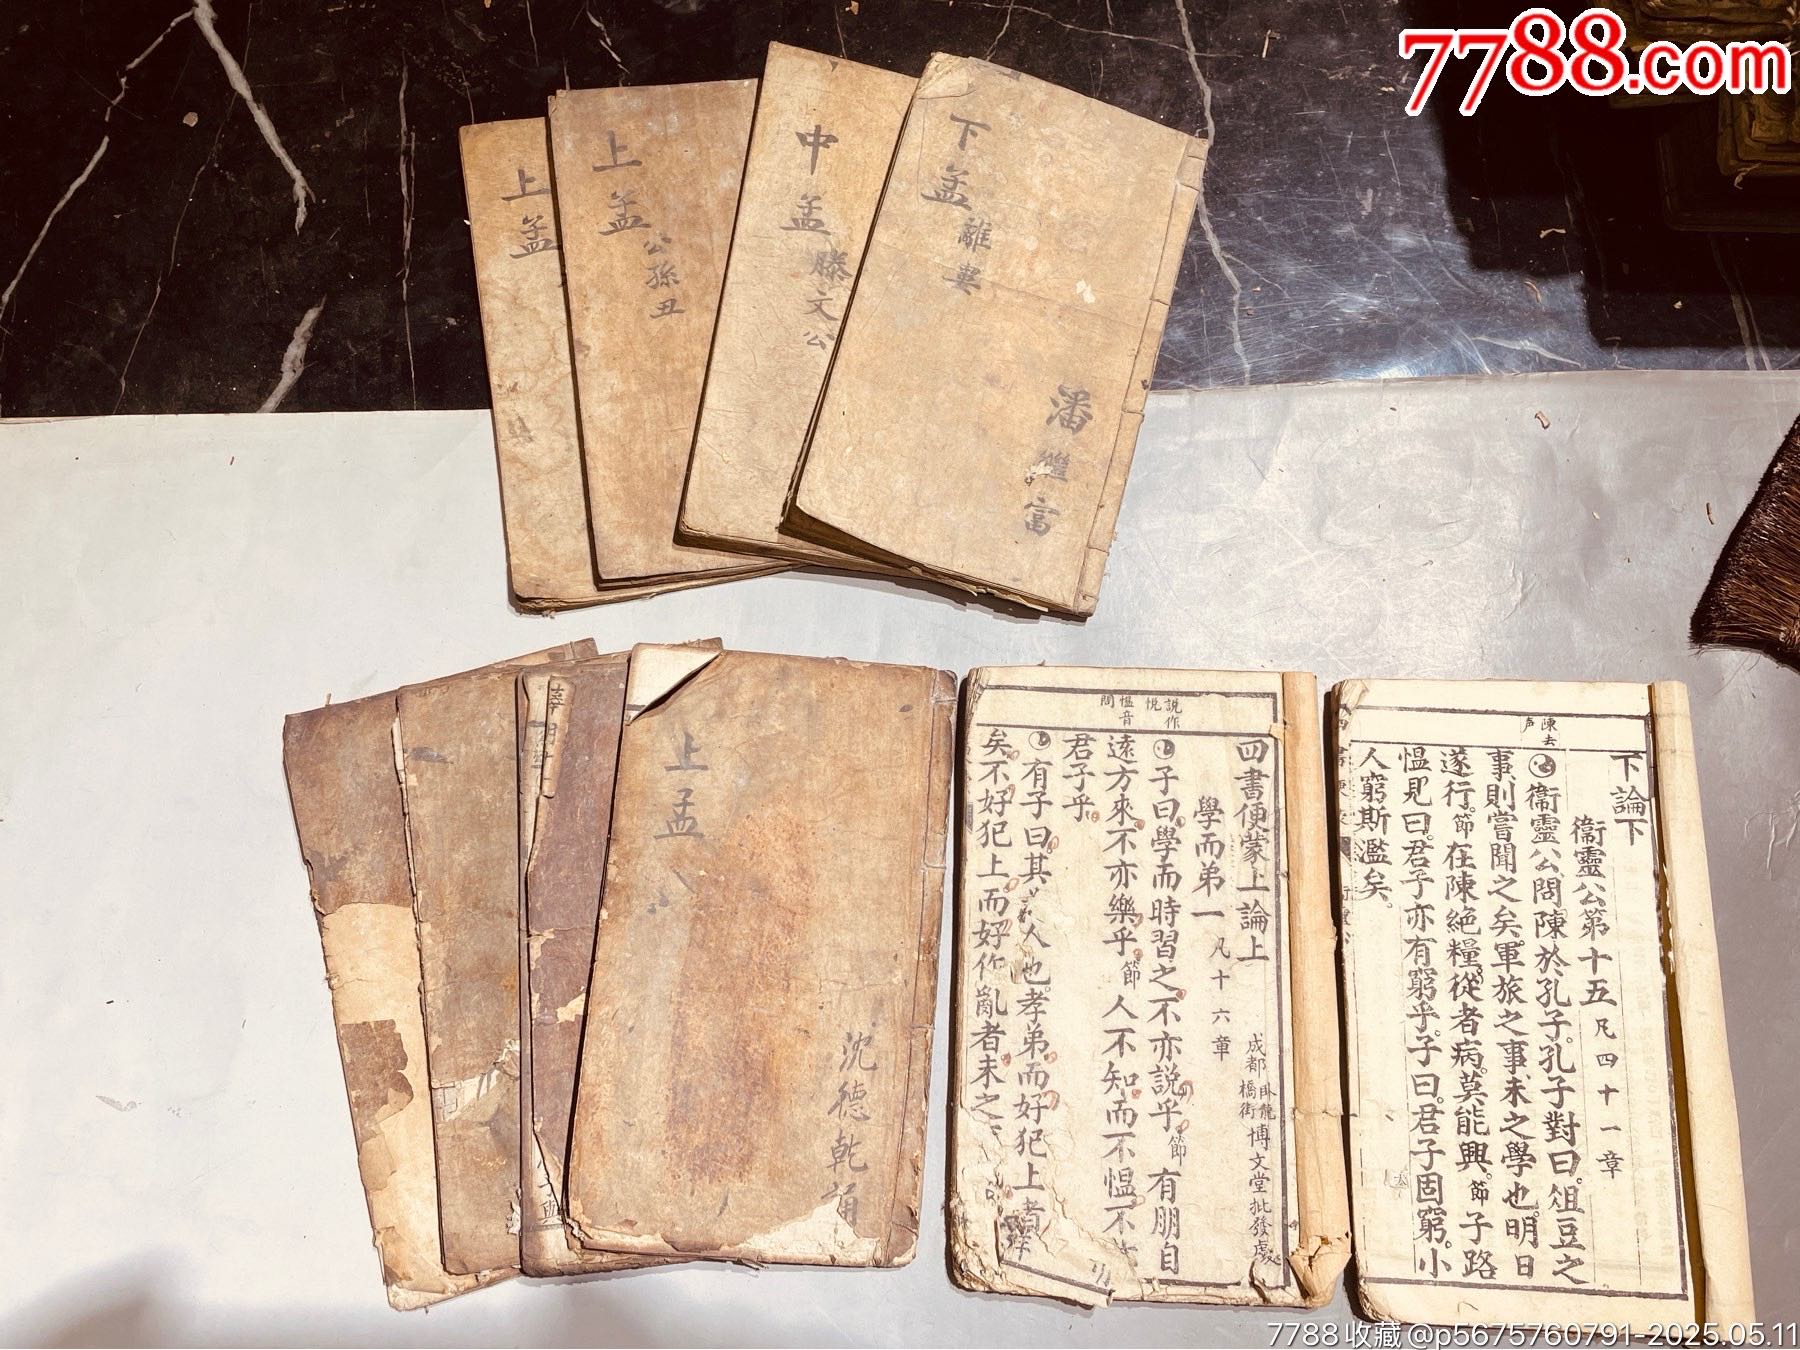 7788.com
上孟
上孟
公孫丑
中孟
滕文公
下孟
離婁
潘繼富
上孟
沈德乾誦
説作
悦
愠音
問
四書便蒙上論上
成都
臥龍
橋街
博文堂批發處
學而第一
凡十六章
子曰學而時習之不亦説乎節有朋自
遠方來不亦樂乎節人不知而不愠不
君子乎
有子曰其
人也孝弟而好犯上者
矣不好犯上而好作亂者未之
陳去
声
下論下
衞靈公第十五
凡四十一章
衞靈公問陳於孔子孔子對曰俎豆之
事則嘗聞之矣軍旅之事未之學也明日
遂行節在陳絶糧從者病莫能興節子路
愠見曰君子亦有窮乎子曰君子固窮小
人窮斯濫矣
7788收藏@p5675760791-2025.05.11